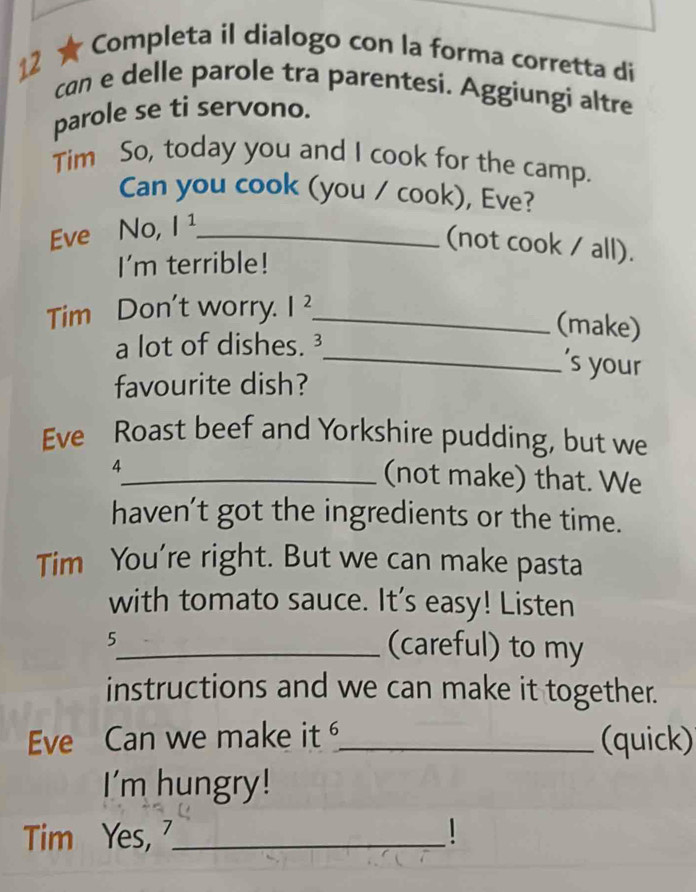 12 ★ Completa il dialogo con la forma corretta di
can e delle parole tra parentesi. Aggiungi altre
parole se ti servono.
Tim So, today you and I cook for the camp.
Can you cook (you / cook), Eve?
Eve No, I ¹________________ (not cook / all).
I'm terrible!
Tim Don't worry. I ²________________ (make)
a lot of dishes. ³________________ 's your
favourite dish?
Eve Roast beef and Yorkshire pudding, but we
⁴________________ (not make) that. We
haven't got the ingredients or the time.
Tim You're right. But we can make pasta
with tomato sauce. It's easy! Listen
⁵________________ (careful) to my
instructions and we can make it together.
Eve Can we make it ⁶________________ (quick)
I'm hungry!
Tim Yes, ⁷________________!